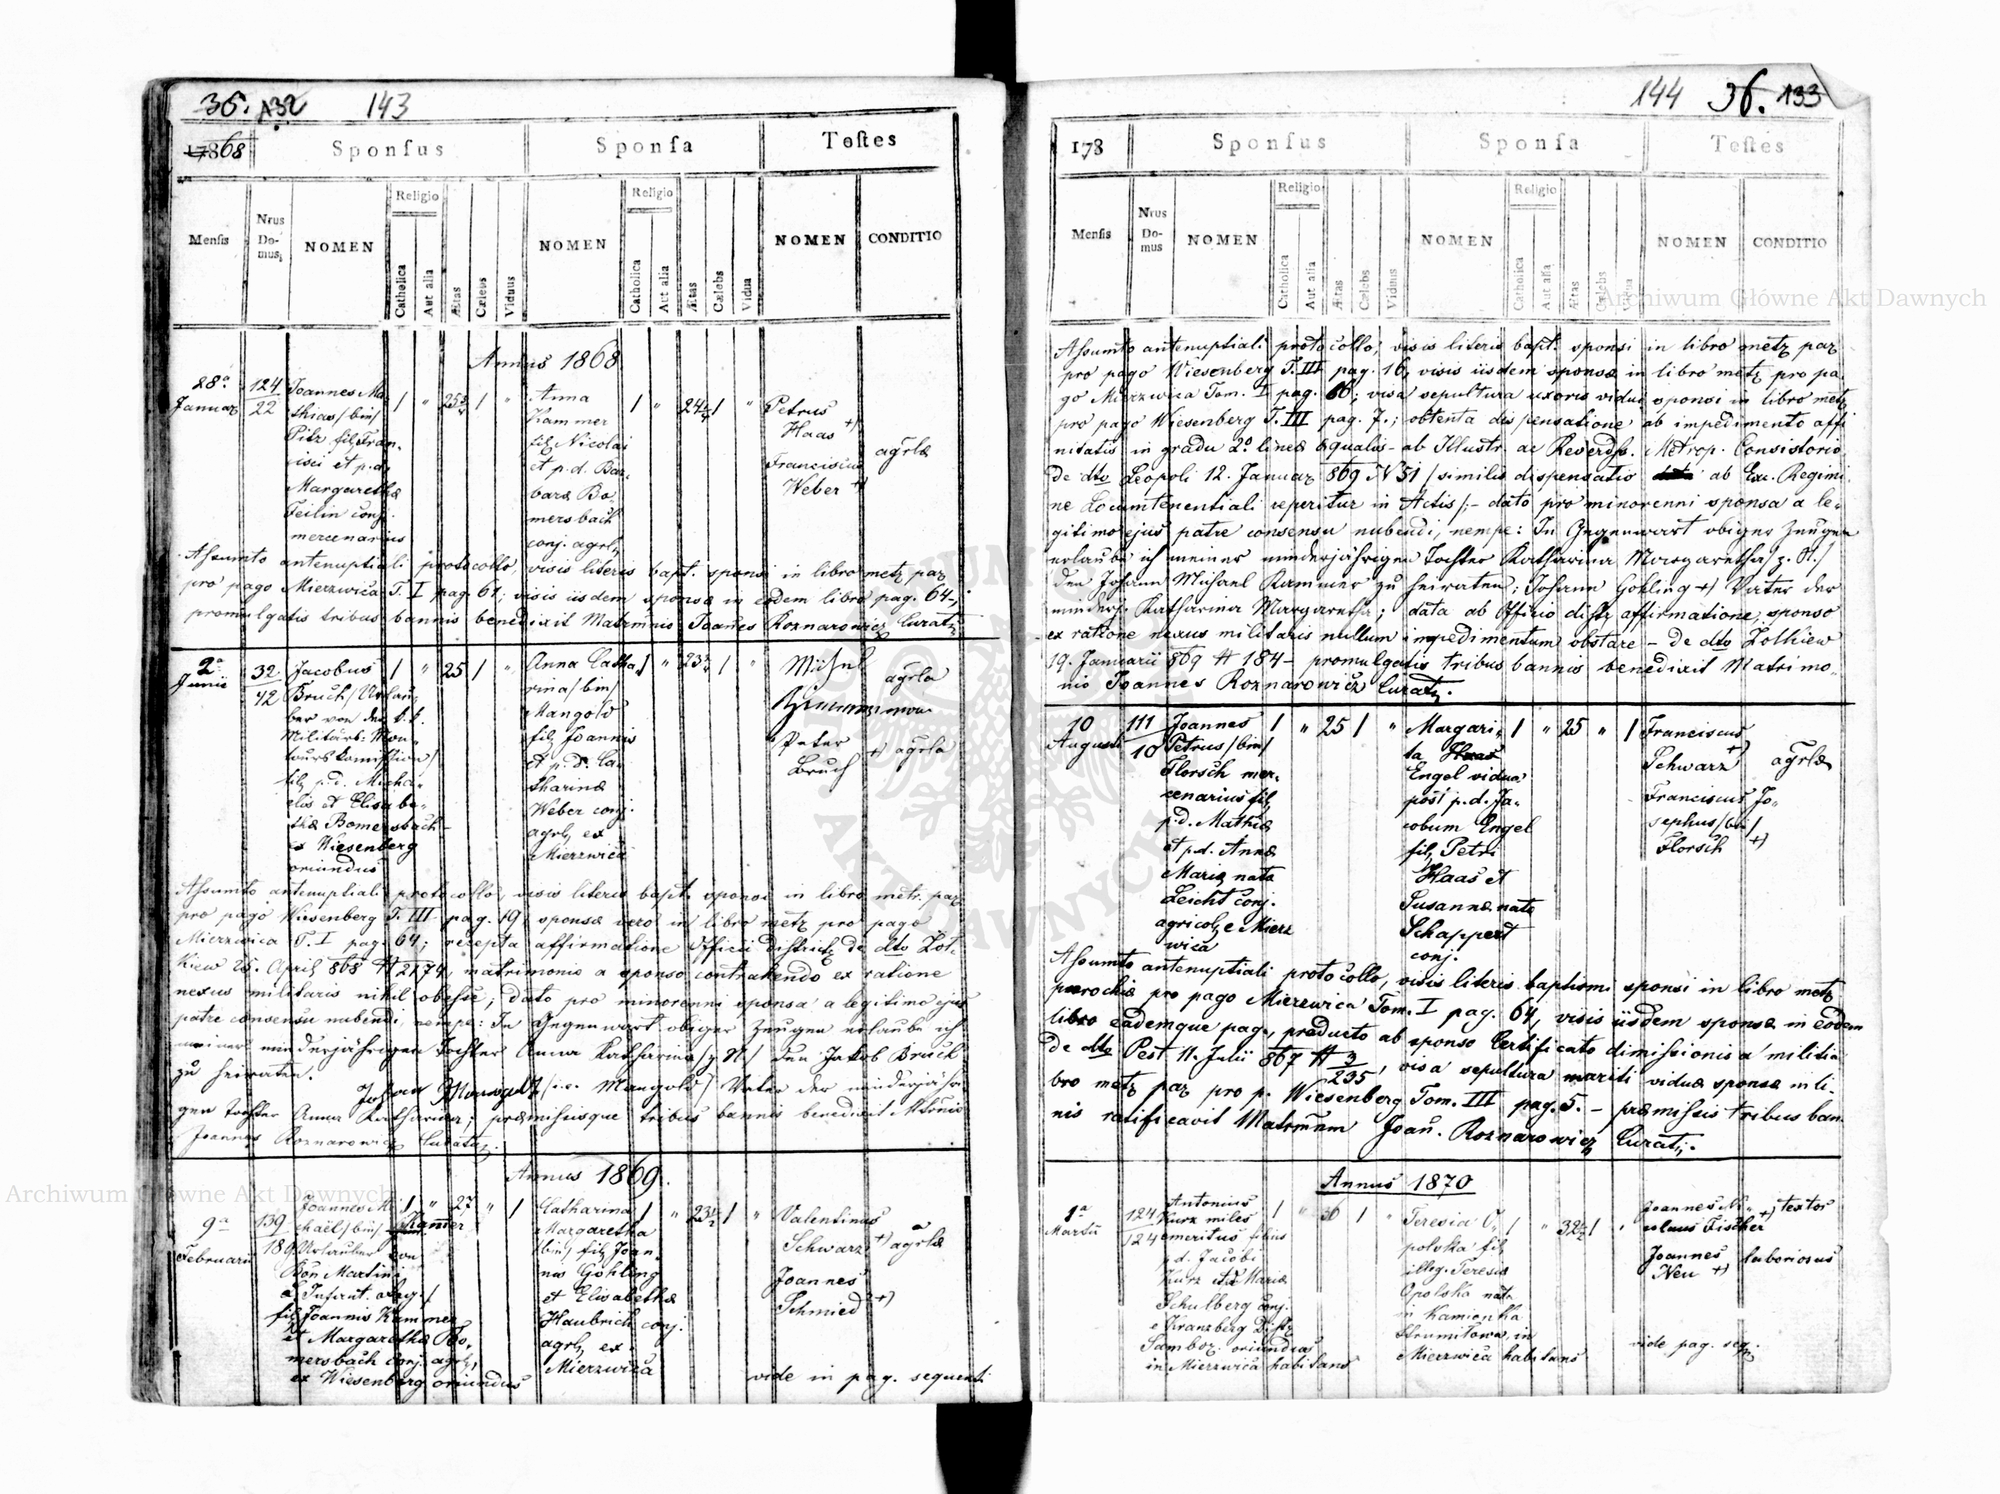 35. 132 143
17868 Sponſus Sponſa Teſtes
Menſis Nrus Do- mus, NOMEN Religio Catholica Aut alia Ætas Cælebs Viduus NOMEN Religio Catholica Aut alia Ætas Cælebs Vidua NOMEN CONDITIO
Annus 1868
28a Januar
124
22
Joannes Ma-
thias /bin/
Pilz fil. Fran-
cisci et p.d.
Margarethæ
Feilin conj.
mercenarius
/ " 25 / "
Anna
Kammer
fil. Nicolai
et p.d. Bar-
baræ Bo
mersbach
conj. agrl.
/ " 24 / "
Petrus
Haas +)
Franciscus
Weber +)
agrlæ
Assumto antenuptiali protocollo, visis literis bapt. sponsi in libro metr. par.
pro pago Mierzwica T. I pag. 61; visis iisdem sponsæ in eodem libro pag. 64-,
promulgatis tribus bannis benedixit Matrimnio Joannes Roznarowicz Curat.
2a Junii
32
42
Jacobus
Bruch /Urlau-
ber von der k.k.
Militär: Mon-
tourskomission/
fil. p.d. Micha-
elis et Elisabe-
thæ Bomersbach-
ex Wiesenberg
oriundus
/ " 25 / "
Anna Catha-
rina /bin/
Mangold
fil. Joannis
et p.d. Ca-
tharinæ
Weber conj.
agrl. ex
Mierzwica
/ " 23 / "
Michael
agrla
Peter
Bruch
+) agrla
Assumto antenuptiali protocollo, visis literis bapt. sponsi in libro metr. par.
pro pago Wiesenberg T. III pag. 19, sponsæ vero in libro metr. pro pago
Mierzwica T. I pag. 64; recepta affirmatione Officii district. de dto Zol-
kiew 25. April 868 # 2174, matrimonio a sponso contrahendo ex ratione
nexus militaris nihil obesse; dato pro minorenni sponsa a legitimo ejus
patre consensu nubendi, nempe: In Gegenwart obiger Zeugen erlaube ich
meiner minderjährigen Tochter Anna Katharina /z. N./ den Jakob Bruch
zu heiraten.
Johan /i.e. Mangold/ Vater der minderjähri
gen Tochter Anna Katharina; præmissisque tribus bannis benedixit Mtrmnio
Joannes Roznarowicz Curatus.
Annus 1869.
9a
Februarii
139
189
Joannes Mi-
chael /bin/ Kam̄er
Urlauber von
Bon Martini
Infant. Reg./
fil. Joannis Kammer
et Margarethæ Bo-
mersbach conj. agrl.,
ex Wiesenberg oriundus
/ " 27 " /
Catharina
Margaretha
/bin/ fil. Joan-
nis Gohling
et Elisabethæ
Haubrich conj.
agrl. ex
Mierzwica
/ " 23½ / "
Valentinus
Schwarz +)
Joannes
Schmied +)
agrlæ
vide in pag. sequenti
144 36. 133
178 Sponſus Sponſa Teſtes
Menſis Nrus Do- mus NOMEN Religio Catholica Aut alia Ætas Cælebs Viduus NOMEN Religio Catholica Aut alia Ætas Cælebs Vidua NOMEN CONDITIO
Assumto antenuptiali protocollo, visis literis bapt. sponsi in libro metr. par.
pro pago Wiesenberg T. III pag. 16, visis iisdem sponsæ in libro metr. pro pa-
go Mierzwica Tom. I pag. 66; visa sepultura uxoris vidui sponsi in libro metr.
pro pago Wiesenberg T. III pag. 7.; obtenta dispensatione ab impedimento affi
nitatis in gradu 2o lineæ æqualis - ab Illustr. ac Reverdss. Metrop. Consistorio
de dto Leopoli 12. Januar 869 N 51 /similis dispensatio ab Exc. Regimi-
ne Locumtenentiali reperitur in Actis/; - dato pro minorenni sponsa a le-
gitimo ejus patre consensu nubendi, nempe: In Gegenwart obiger Zeugen
erlaube ich meiner minderjährigen Tochter Katharina Margaretha /z. N./
den Johann Michael Kammer zu heiraten; Johann Gohling +) Vater der
minderj. Katharina Margaretha; data ab Officio distr. affirmatione, sponso
ex ratione nexus militaris nullum impedimentum obstare - de dto Zolkiew
19. Januarii 869 # 184 - promulgatis tribus bannis benedixit Matrimo-
nio Joannes Roznarowicz Curat.
10
Augusti
111
10
Joannes
Petrus /bin/
Florsch mer-
cenarius fil.
p.d. Mathiæ
et p.d. Annæ
Mariæ nata
Leicht conj.
agricol. e Mierz
wica
/ " 25 / "
Margari-
ta Haas
Engel vidua
post p.d. Ja-
cobum Engel
fil. Petri
Haas et
Susannæ nata
Schappert
conj.
/ " 25 " /
Franciscus
Schwarz +)
Franciscus Jo-
sephus /bin/
Florsch +)
agrlæ
Assumto antenuptiali protocollo, visis literis baptismi sponsi in libro metr.
parochiæ pro pago Mierzwica Tom. I pag. 64, visis iisdem sponsæ in eodem
libro eademque pag., producto ab sponso Certificato dimissionis a militia
de dto Pest 11. Julii 867 # 3/235, visa sepultura mariti viduæ sponsæ in li-
bro metr. par. pro p. Wiesenberg Tom. III pag. 5. - præmissis tribus ban-
nis ratificavit Matrm̄nm Joan. Roznarowicz Curat.
Annus 1870
1a
Martii
124
124
Antonius
Kurz miles
emeritus filius
p.d. Jacobi
Kurz et Mariæ
Schulberg conj.
e Kranzberg Distr.
Sambor. oriundus
in Mierzwica habitans
/ " 30 / "
Teresia O-
polska fil.
illeg. Teresiæ
Opolska nata
in Kamionka
Strumilowa, in
Mierzwica habitans
/ " 32½ / "
Joannes Ni-
colaus Fischer +) textor
Joannes
Neu +) laboriosus
vide pag. seq.
Archiwum Główne Akt Dawnych
Archiwum Główne Akt Dawnych